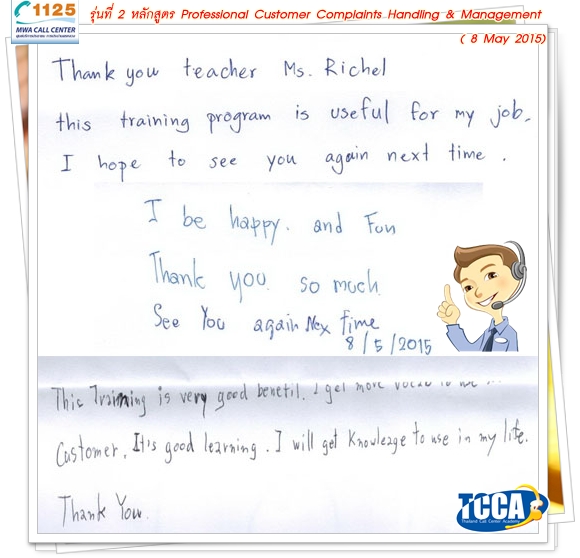 1125
MWA CALL CENTER
รุ่นที่ 2 หลักสูตร Professional Customer Complaints Handling & Management
( 8 May 2015)
Thank you teacher Ms. Richel
this training program is useful for my job.
I hope to see you again next time.
I be happy. and Fun
Thank you so much.
See You again Nex time
8/5/2015
This Training is very good benefit. I get more
Customer. It's good learning. I will get Knowleage to use in my life.
Thank You.
TCCA
Thailand Call Center Academy